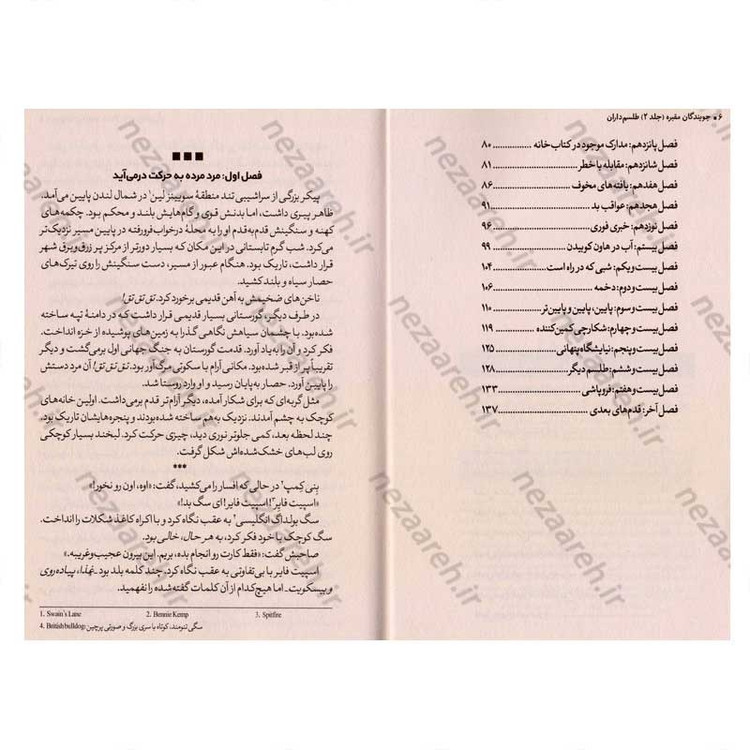 ۶ ▪ جویندگان مقبره (جلد ۲) طلسم‌داران
فصل پانزدهم: مدارک موجود در کتاب‌خانه ........ ۸۰
فصل شانزدهم: مقابله با خطر ........ ۸۱
فصل هفدهم: یافته‌های مخوف ........ ۸۶
فصل هجدهم: عواقب بد ........ ۹۱
فصل نوزدهم: خبری فوری ........ ۹۶
فصل بیستم: آب در هاون کوبیدن ........ ۹۹
فصل بیست‌ویکم: شبی که در راه است ........ ۱۰۴
فصل بیست‌ودوم: دخمه ........ ۱۰۶
فصل بیست‌وسوم: پایین، پایین و پایین‌تر ........ ۱۱۰
فصل بیست‌وچهارم: شکارچی کمین‌کننده ........ ۱۱۹
فصل بیست‌وپنجم: نیایشگاه پنهانی ........ ۱۲۵
فصل بیست‌وششم: طلسم دیگر ........ ۱۲۸
فصل بیست‌وهفتم: فروپاشی ........ ۱۳۳
فصل آخر: قدم‌های بعدی ........ ۱۳۷
■ ■ ■
فصل اول: مرد مرده به حرکت درمی‌آید
پیکر بزرگی از سراشیبی تند منطقهٔ سویینز لین¹ در شمال لندن پایین می‌آمد.
ظاهر پیری داشت، اما بدنش قوی و گام‌هایش بلند و محکم بود. چکمه‌های
کهنه و سنگینش قدم‌به‌قدم او را به محلهٔ درخواب‌فرورفته در پایین مسیر نزدیک‌تر
می‌کرد. شب گرم تابستانی در این مکان که بسیار دورتر از مرکز پر زرق‌وبرق شهر
قرار داشت، تاریک بود. هنگام عبور از مسیر، دست سنگینش را روی تیرک‌های
حصار سیاه و بلند کشید.
ناخن‌های ضخیمش به آهن قدیمی برخورد کرد. تق تق تق!
در طرف دیگر، گورستانی بسیار قدیمی قرار داشت که در دامنهٔ تپه ساخته
شده‌بود. با چشمان سیاهش نگاهی گذرا به زمین‌های پوشیده از خزه انداخت.
فکر کرد و آن را به‌یاد آورد. قدمت گورستان به جنگ جهانی اول برمی‌گشت و دیگر
تقریباً پر از قبر شده‌بود. مکانی آرام با سکوتی مرگ‌آور بود. تق تق تق! آن مرد دستش
را پایین آورد. حصار به‌پایان رسید و او وارد روستا شد.
مثل گربه‌ای که برای شکار آمده، دیگر آرام‌تر قدم برمی‌داشت. اولین خانه‌های
کوچک به چشم آمدند. نزدیک به‌هم ساخته شده‌بودند و پنجره‌هایشان تاریک بود.
چند لحظه بعد، کمی جلوتر نوری دید، چیزی حرکت کرد. لبخند بسیار کوچکی
روی لب‌های خشک‌شده‌اش شکل گرفت.
***
بنی کمپ² در حالی که افسار را می‌کشید، گفت: «اوه، اون رو نخور!»
«اسپیت فایر³! اسپیت فایر! ای سگ بد!»
سگ بولداگ انگلیسی⁴ به عقب نگاه کرد و با اکراه کاغذ شکلات را انداخت.
سگ کوچک با خود فکر کرد، به هر حال، خالی بود.
صاحبش گفت: «فقط کارت رو انجام بده، بریم. این بیرون عجیب‌وغریبه.»
اسپیت فایر با بی‌تفاوتی به عقب نگاه کرد. چند کلمه بلد بود ـ غذا، پیاده‌روی
و بیسکویت ـ اما هیچ‌کدام از آن کلمات گفته‌شده را نفهمید.
1. Swain's Lane 2. Bennie Kemp 3. Spitfire
4. British bulldog: سگی تنومند، کوتاه با سری بزرگ و صورتی پرچین
nezaareh.ir